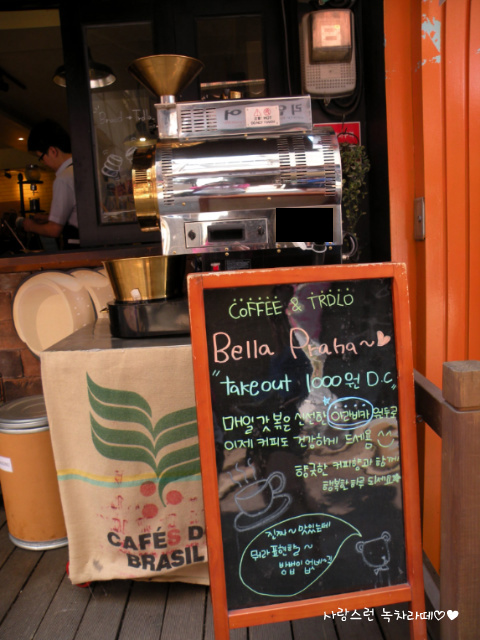 COFFEE & TRDLO
Bella Praha~♥
"takeout 1000원 D.C"
매일 갓 볶은 신선한 아라비카 원두로
이제 커피도 건강하게 드세용
향긋한 커피향과 함께
행복한 하루 되세요
진짜~ 맛있는데
뭐라 표현할~
방법이 없네
CAFÉS DO
BRASIL
사랑스런 녹차라떼♡♥